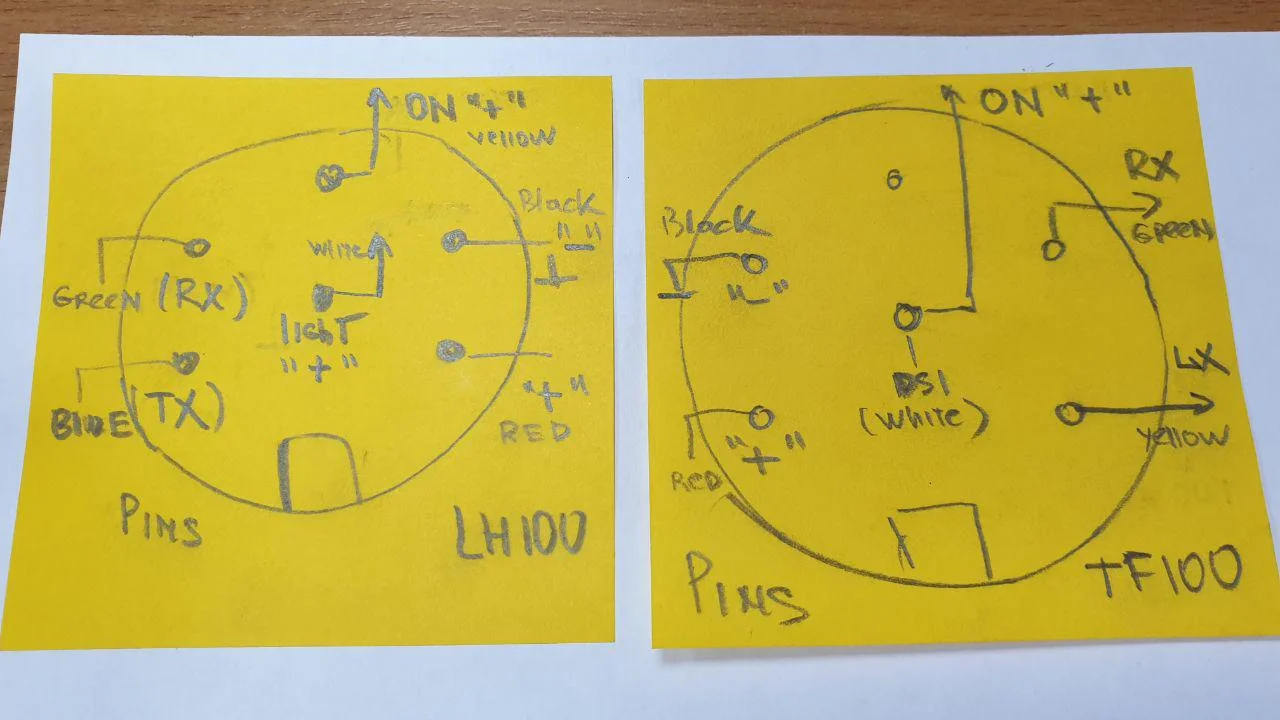 ON "+"
yellow
Black
"-"
white
GREEN (RX)
light
"+"
BLUE (TX)
"+"
RED
PINS
LH100
ON "+"
RX
GREEN
Black
"-"
DSI
(white)
yellow
RED
"+"
PINS
TF100